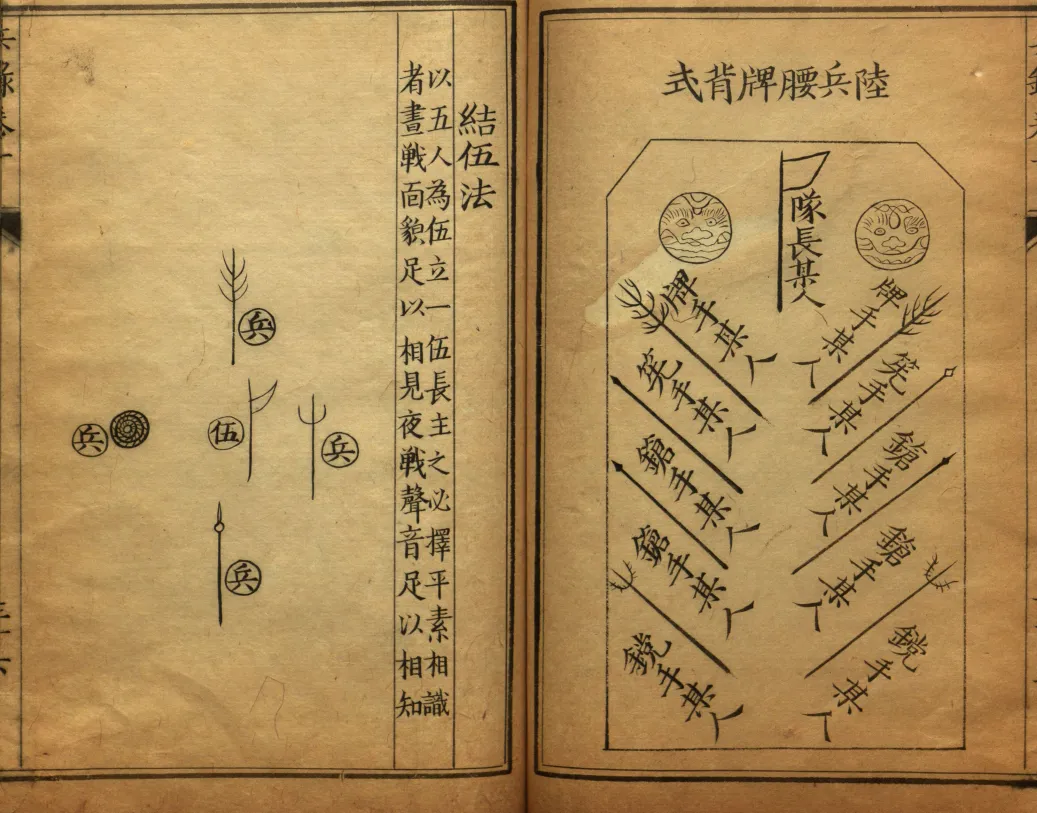 陸兵腰牌背式
隊長某人
牌手某人
筅手某人
鎗手某人
鎗手某人
鋭手某人
牌手某人
筅手某人
鎗手某人
鎗手某人
鋭手某人
結伍法
以五人為伍立一伍長主之必擇平素相識
者晝戦面貌足以相見夜戦聲音足以相知
兵
兵
伍
兵
兵